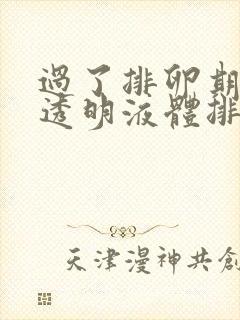 過了排卵期
透明液體排
天津漫神共創